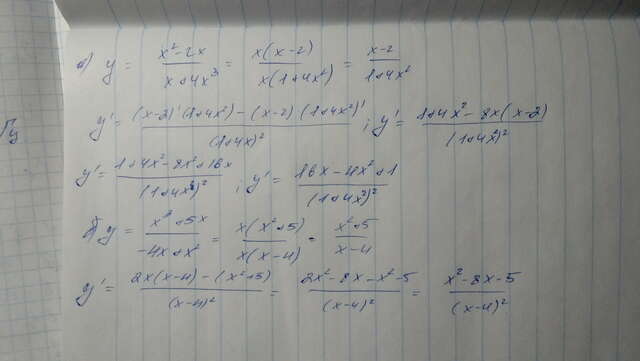 в) y = (x²-2x)/(x+4x³) = x(x-2)/x(1+4x²) = (x-2)/(1+4x²)
y' = ((x-2)'(1+4x²) - (x-2)(1+4x²)')/(1+4x²)² ; y' = (1+4x² - 8x(x-2))/(1+4x²)²
y' = (1+4x²-8x²+16x)/(1+4x²)² ; y' = (16x-4x²+1)/(1+4x²)²
y = (x³+5x)/(-4x+x²) = x(x²+5)/x(x-4) = (x²+5)/(x-4)
y' = (2x(x-4) - (x²+5))/(x-4)² = (2x²-8x-x²-5)/(x-4)² = (x²-8x-5)/(x-4)²